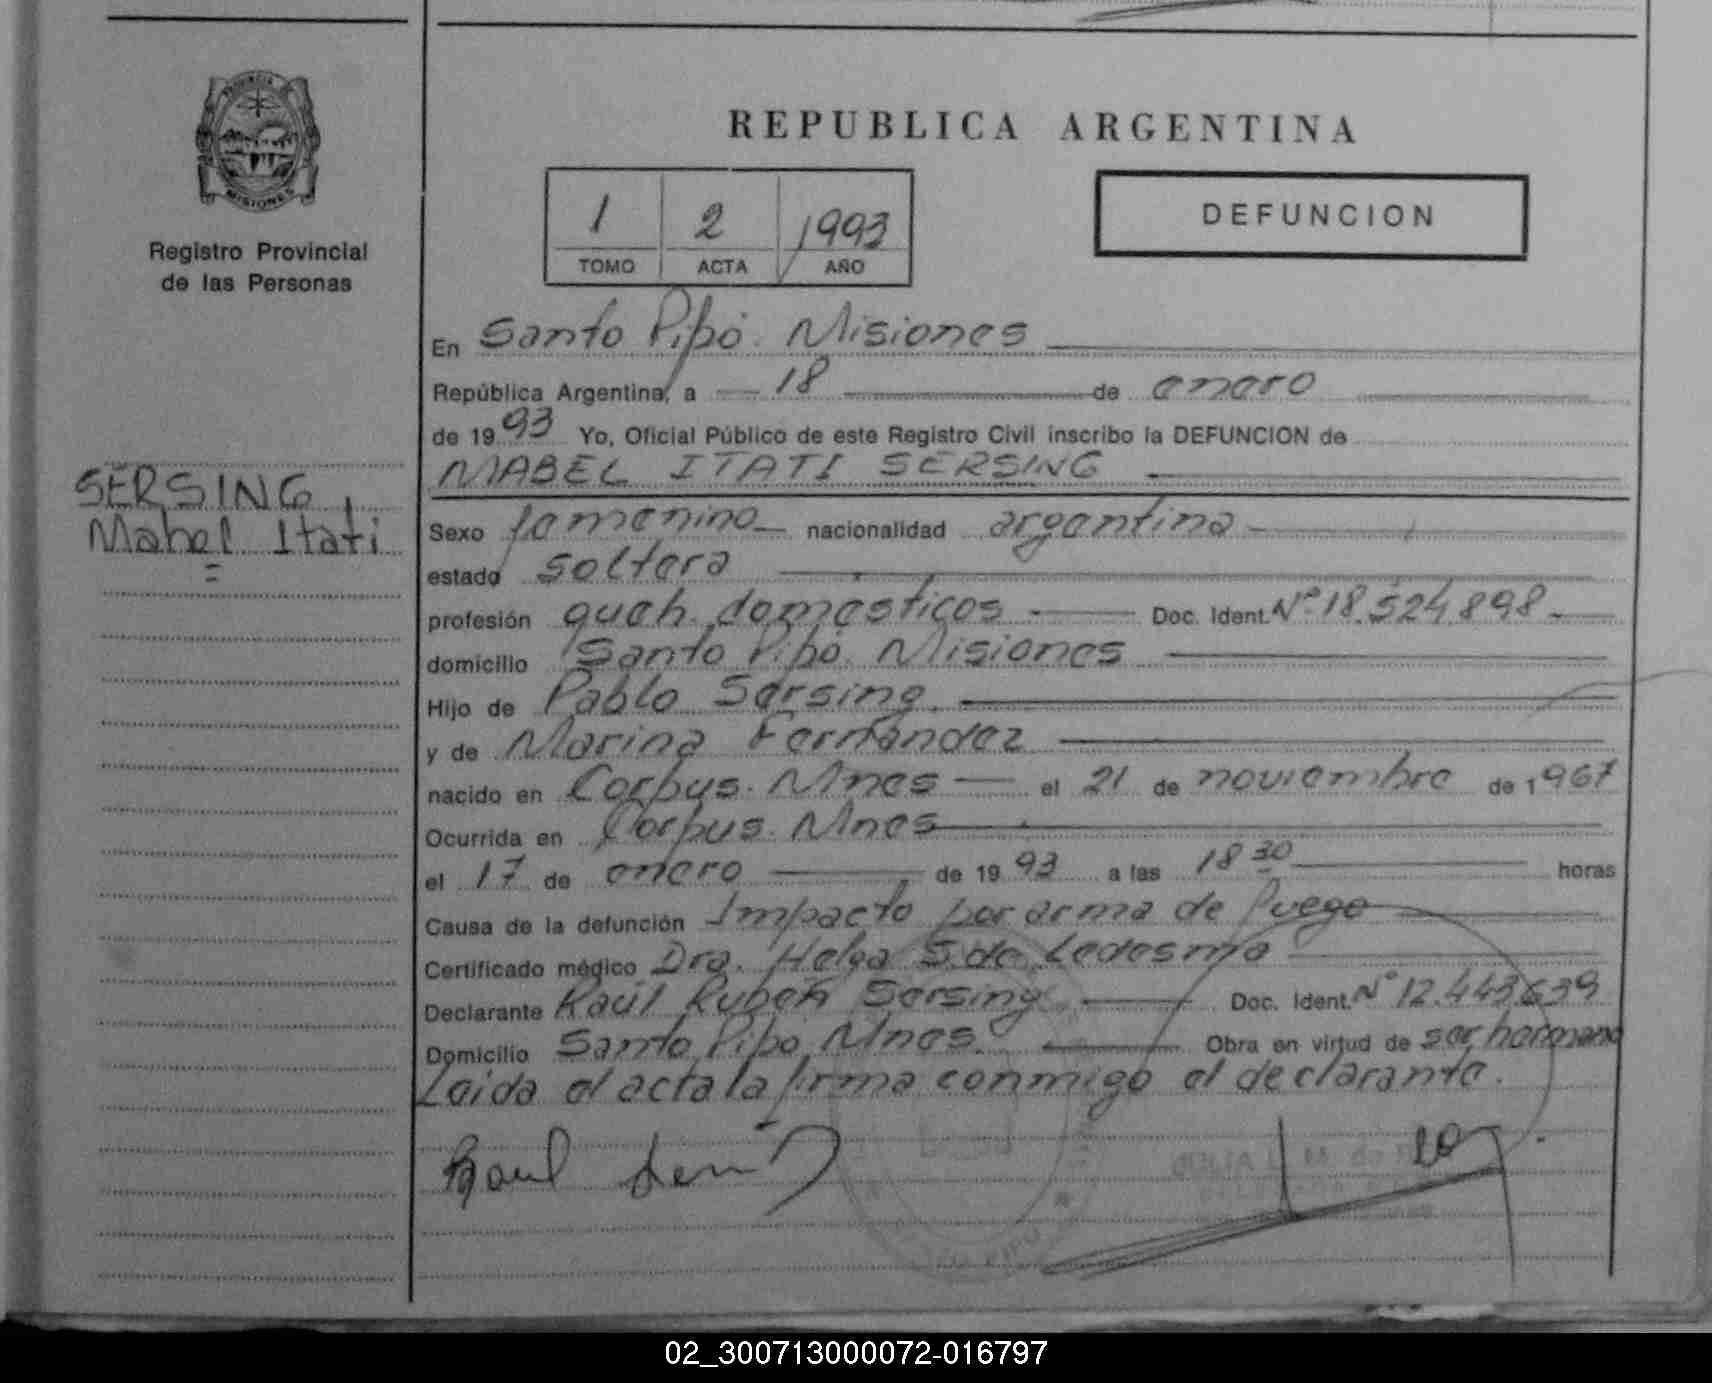 PROVINCIA
MISIONES
Registro Provincial
de las Personas
SERSING
Mabel Itati
=
REPUBLICA ARGENTINA
1 2 1993
TOMO ACTA AÑO
DEFUNCION
En Santo Pipó. Misiones
República Argentina, a 18 de enero
de 1993 Yo, Oficial Público de este Registro Civil inscribo la DEFUNCION de
MABEL ITATI SERSING
Sexo femenino nacionalidad argentina
estado soltera
profesión queh. domesticos Doc. Ident. Nº 18.524.898
domicilio Santo Pipó. Misiones
Hijo de Pablo Sersing.
y de Marina Fernández
nacido en Corpus. Mnes el 21 de noviembre de 1967
Ocurrida en Corpus. Mnes
el 17 de enero de 1993 a las 18 30 horas
Causa de la defunción Impacto por arma de fuego
Certificado médico Dra. Helga S. de Ledesma
Declarante Raúl Rubén Sersing Doc. Ident. Nº 12.443639
Domicilio Santo Pipó Mnes. Obra en virtud de ser hermano
Leida el acta la firma conmigo el declarante.
Raul
JULIA L. M. de
PIPO
02_300713000072-016797